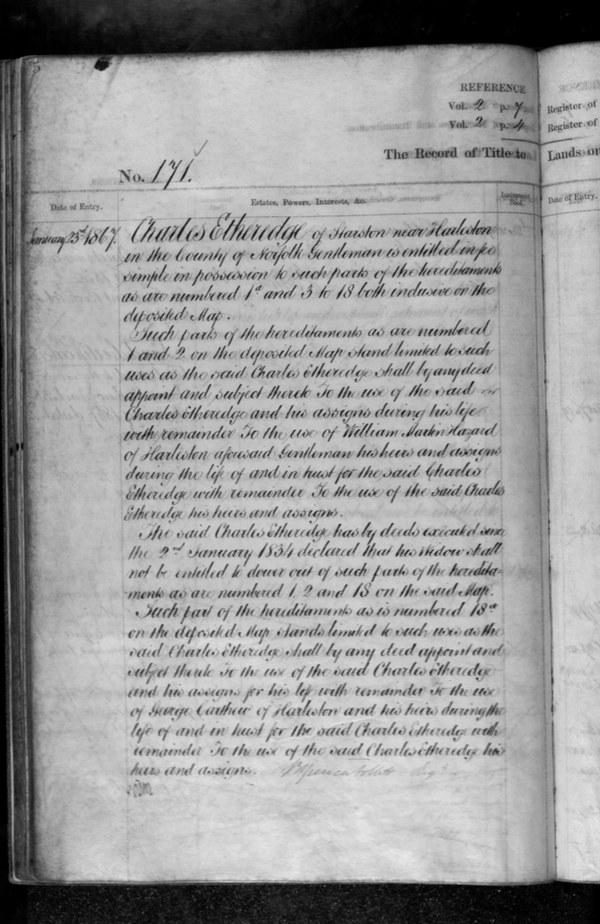 REFERENCE
Vol. 2 p. 7
Vol. 2 p. 4
Register of
Register of
The Record of Title to
Lands or
No. 171.
Date of Entry.
Estates, Powers, Interests, &c.
Date of Entry.
January 23rd 1867.
Charles Etheredge of Starston near Harleston
in the County of Norfolk Gentleman is entitled in fee
simple in possession to such parts of the hereditaments
as are numbered 1a and 3 to 18 both inclusive on the
deposited Map.
Such parts of the hereditaments as are numbered
1 and 2 on the deposited Map stand limited to such
uses as the said Charles Etheredge shall by any deed
appoint and subject thereto To the use of the said
Charles Etheredge and his assigns during his life
with remainder To the use of William Martin Hazard
of Harleston aforesaid Gentleman his heirs and assigns
during the life of and in trust for the said Charles
Etheredge with remainder To the use of the said Charles
Etheredge his heirs and assigns.
The said Charles Etheredge has by deeds executed since
the 2nd January 1834 declared that his Widow shall
not be entitled to dower out of such parts of the heredita-
ments as are numbered 1, 2 and 18 on the said Map.
Such part of the hereditaments as is numbered 18a
on the deposited Map stands limited to such uses as the
said Charles Etheredge shall by any deed appoint and
subject thereto To the use of the said Charles Etheredge
and his assigns for his life with remainder To the use
of George Carthew of Harleston and his heirs during the
life of and in trust for the said Charles Etheredge with
remainder To the use of the said Charles Etheredge his
heirs and assigns.